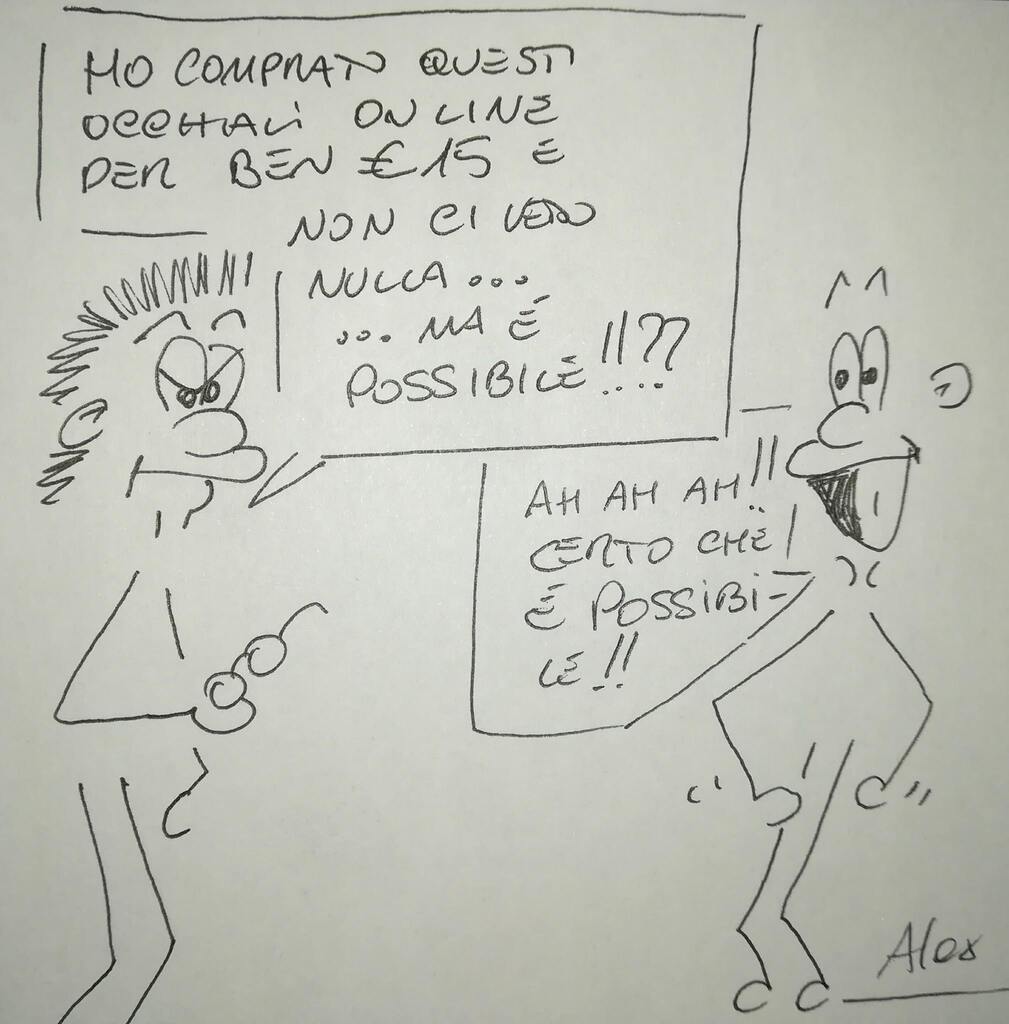 HO COMPRATO QUESTI
OCCHIALI ON LINE
PER BEN €15 E
NON CI VEDO
NULLA...
... MA É
POSSIBILE!!??
AH AH AH!!
CERTO CHE
É POSSIBI-
LE!!
Alex